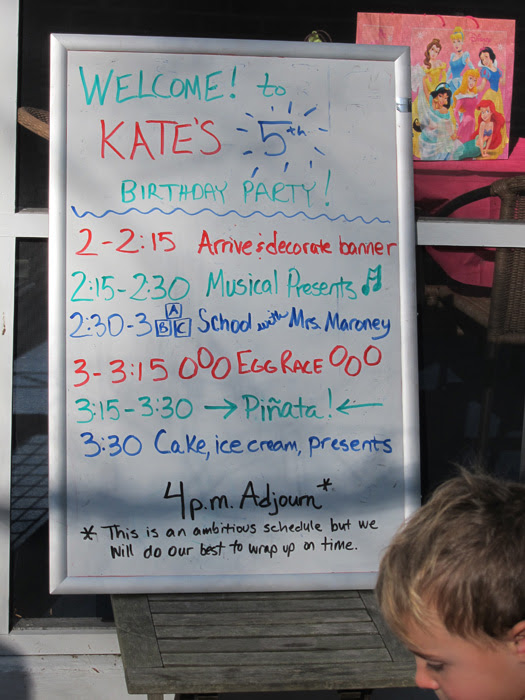 WELCOME! to
KATE'S 5th
BIRTHDAY PARTY!
2-2:15 Arrive & decorate banner
2:15-2:30 Musical Presents ♫
2:30-3 ABC School with Mrs. Maroney
3-3:15 EGG RACE
3:15-3:30 → Piñata! ←
3:30 Cake, ice cream, presents
4 p.m. Adjourn*
* This is an ambitious schedule but we
will do our best to wrap up on time.